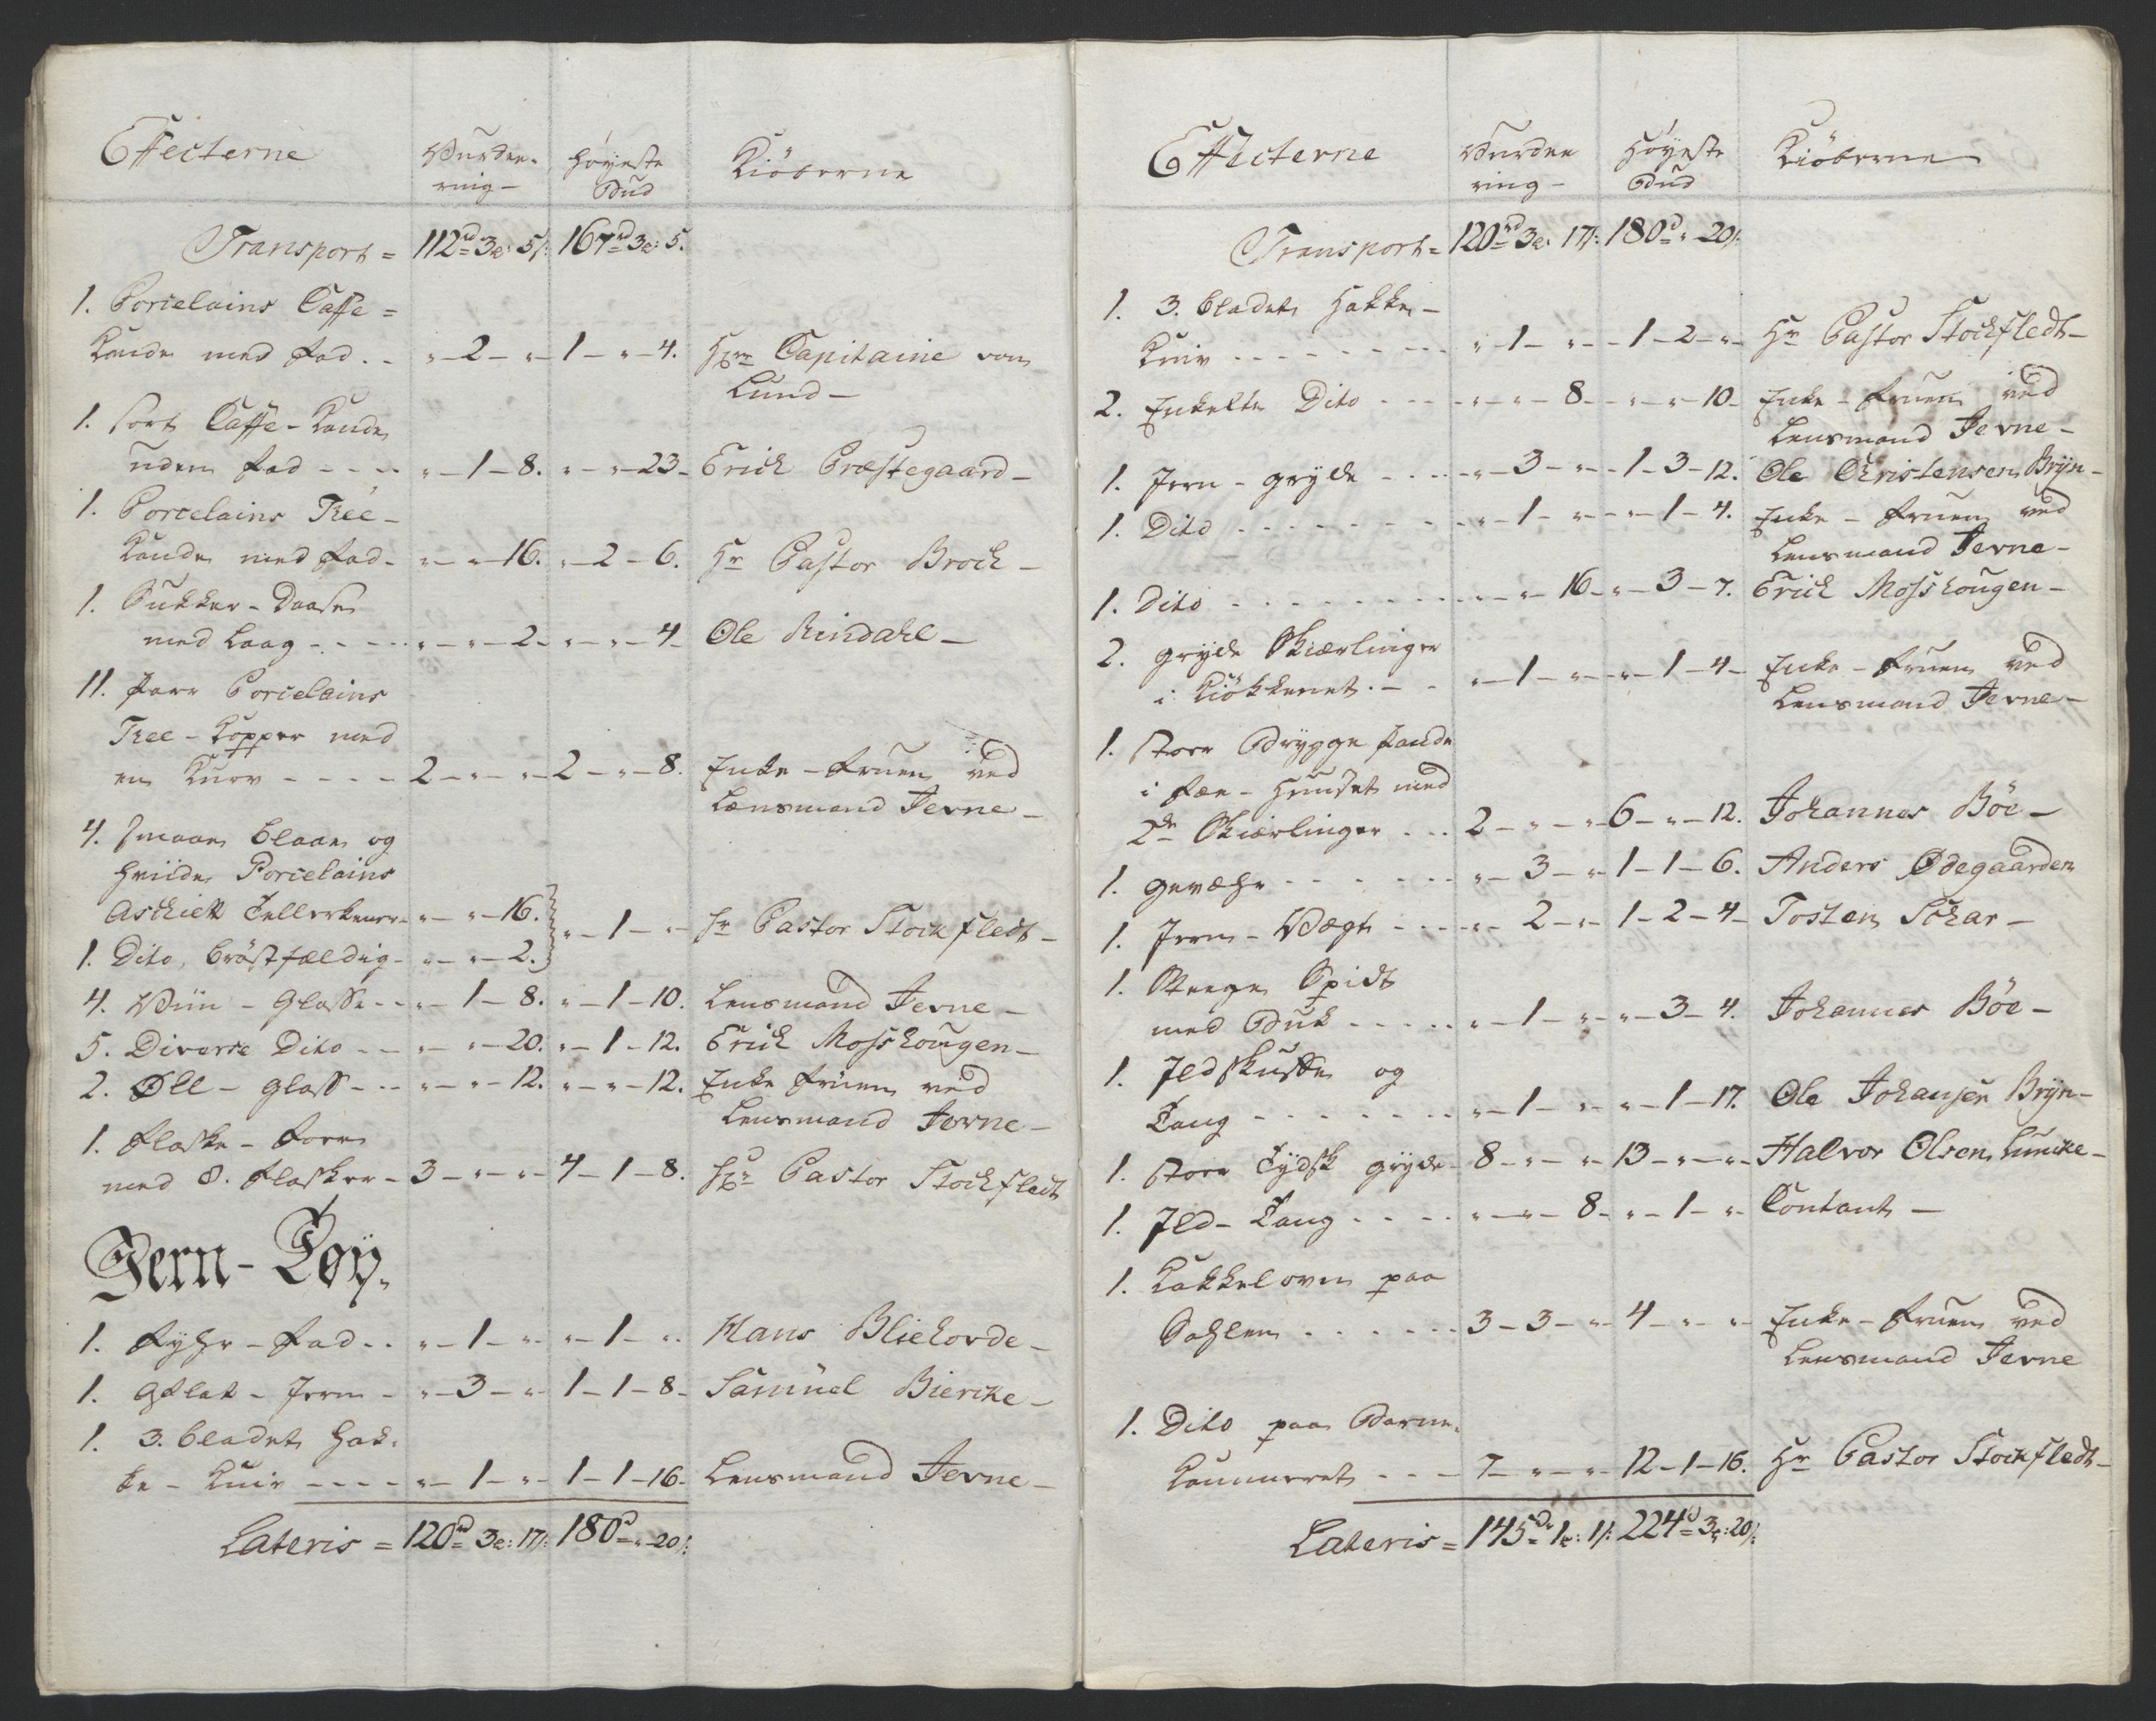 Effecterne Vurdee- høyeste Kiöberne
ring- Bud
Transport = 112rd 3e: 5/: 167rd 3e: 5.
1. Porcelains Caffe =
Kande med fad . . „ - 2 - „ - 1 - „ - 4. Hrr Capitaine von
Lund -
1. sort Caffe-Kande
uden fad - - - - „ - 1 - 8. „ - „ - 23 - Erich Præstegaard -
1. Porcelains Thee -
Kande med fad - „ - „ - 16. „ - 2 - 6. Hr Pastor Broch -
1. Sukker-Daase
med Laag - - - - „ - „ - 2 - „ - „ - 4 - Ole Rindahl -
11. Parr Porcelains
Thee-Kopper med
en Kurv - - - - 2 - „ - „ - 2 - „ - 8. Enke-Fruen ved
Lænsmand Jevne -
4. smaae blaae og
hviide Porcelains
Aschiett Tellerkener - „ - „ - 16. } „ - 1 - „ - Hr Pastor Stockfledt -
1. Dito, bröstfældig - „ - „ - 2. }
4. Viin-Glasse - - „ - 1 - 8. „ - 1 - 10. Lensmand Jevne -
5. Diverse Dito - - „ - „ - 20. „ - 1 - 12. Erich Moshougen -
2. Øll-glass - - „ - „ - 12. „ - „ - 12. Enke Fruen ved
Lensmand Jevne -
1. Flaske-Foer
med 8. Flasker - 3 - „ - „ - 4 - 1 - 8. Hr Pastor Stockfledt
Jern-Tøy.
1. Fyhr-Fad . . „ - 1 - „ - „ - 1 - „ . Hans Bliehovde -
1. Glat-Jern - „ - 3 - „ - 1 - 1 - 8 - Samuel Biercke -
1. 3. bladet Hak-
ke-Kniv - - - - „ - 1 - „ - 1 - 1 - 16 - Lensmand Jevne -
Lateris = 120rd 3e: 17/: 180rd „ - 20/:
Effecterne Vurdee høyeste Kiöberne
ring - Bud
Transport = 120rd 3e: 17/: 180rd „ - 20/:
1. 3. bladet Hakke -
Kniv - - - - - - „ - 1 - „ - 1 - 2 - „ - Hr Pastor Stockfledt -
2. Enkelte Dito - - - „ - „ - 8 - „ - „ - 10 - Enke-Fruen ved
Lensmand Jevne -
1. Jern-gryde - - - „ - 3 - „ - 1 - 3 - 12. Ole Christensen Brÿn -
1. Dito - - - - - - „ - 1 - „ - „ - 1 - 4. Enke-Fruen ved
Lensmand Jevne -
1. Dito - - - - - - „ - „ - 16 - „ - 3 - 7. Erich Moshougen -
2. gryde Skiærlinger
i Kiökkenet . - - „ - 1 - „ - „ - 1 - 4 - Enke-Fruen ved
Lensmand Jevne -
1. stoer Brygge Pande
i Fæe-Huuset med
2de Skiærlinger - - 2 - „ - „ - 6 - „ - 12. Johannes Böe -
1. gevæhr - - - - - „ - 3 - „ - 1 - 1 - 6. Anders Ødegaarden
1. Jern-Vægt - - - „ - 2 - „ - 1 - 2 - 4 - Tosten Schar -
1. Steege Spidt
med Buk - - - - - „ - 1 - „ - „ - 3 - 4. Johannes Böe -
1. Jldskuffe og
Tang - - - - - - „ - 1 - „ - „ - 1 - 17. Ole Johansen Brÿn -
1. stoer Tydsk gryde - 8 - „ - „ - 13 - „ - „ - Halvor Olsen Luncke -
1. Jld-Tang - - - - „ - „ - 8 - „ - 1 - „ - Contant -
1. Kakkeloven paa
Sahlen . . . . . . 3 - 3 - „ - 4 - „ - „ - Enke-Fruen ved
Lensmand Jevne
1. Dito paa Barne-
Kammeret - - - 7 - „ - „ - 12 - 1 - 16. Hr Pastor Stockfledt -
Lateris = 145rd 1e: 1/: 224rd 3e: 20/: